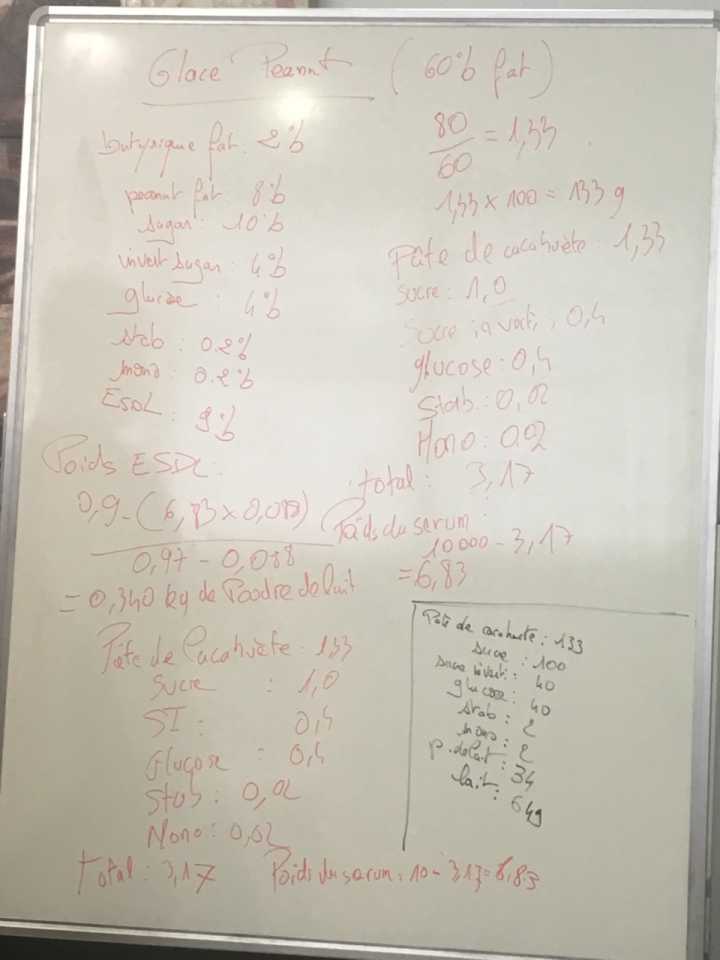 Glace Peanut (60% fat)
butyrique fat. 2%
peanut fat 8%
sugar: 10%
invert sugar: 4%
glucose: 4%
stab: 0.2%
mono: 0.2%
ESDL: 9%
80/60 = 1,33
1,33 x 100 = 133 g
Pâte de cacahuète: 1,33
sucre: 1,0
Sucre invert: 0,4
glucose: 0,4
Stab.: 0,02
Mono: 0,02
total: 3,17
Poids du serum:
10000 - 3,17
= 6,83
Poids ESDL:
0,9 - (6,83 x 0,088)
0,97 - 0,088
= 0,340 kg de Poudre de lait
Pâte de Cacahuète: 133
Sucre: 1,0
SI: 0,4
Glucose: 0,4
Stab: 0,02
Mono: 0,02
Total: 3,17 Poids du serum: 10 - 3,17 = 6,83
Pâte de cacahuete: 133
sucre: 100
sucre invert: 40
glucose: 40
stab: 2
mono: 2
p. de lait: 34
lait: 649